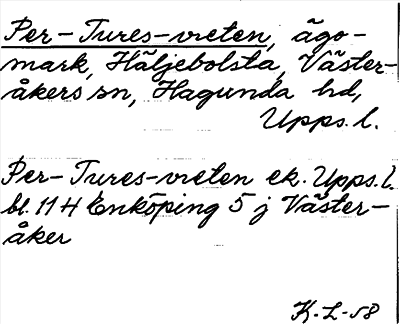 Per-Tures-vreten, ägo-
mark, Häljebolsta, Väster-
åkers sn, Hagunda hd,
Upps. l.
Per-Tures-vreten ek. Upps. l.
bl. 11 H Enköping 5 j Väster-
åker
K.L-58